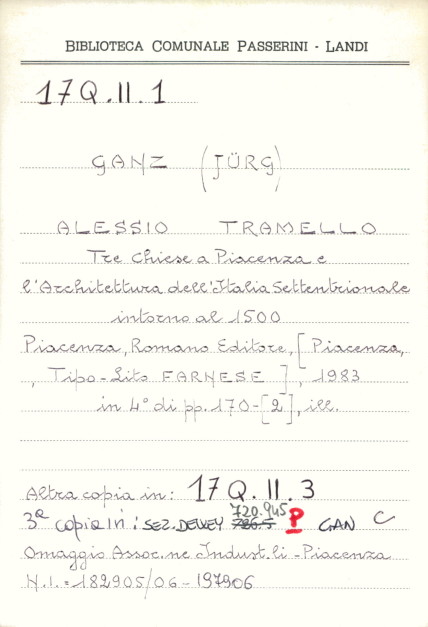 BIBLIOTECA COMUNALE PASSERINI - LANDI
17 Q.II.1
GANZ (JÜRG)
ALESSIO TRAMELLO
Tre Chiese a Piacenza e
l'Architettura dell'Italia Settentrionale
intorno al 1500
Piacenza, Romano Editore, [Piacenza,
, Tipo-Lito FARNESE], 1983
in 4° di pp. 170-[2], ill.
Altra copia in: 17 Q.II.3
720.945
3ª copia in: SEZ. DEWEY P GAN C
Omaggio Assoc.ne Indust.li - Piacenza
N.I.=182905/06-197906